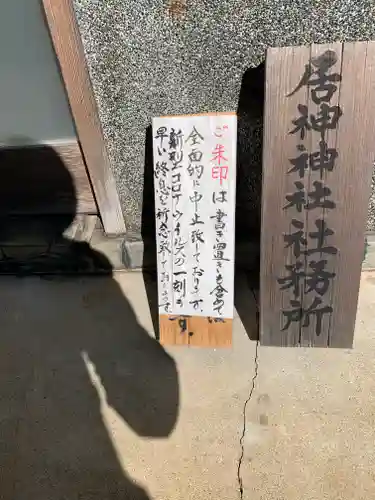 居神神社社務所
ご朱印は書き置きも含めて
全面的に中止致しております。
新型コロナウイルスの一刻も
早い終息を祈念致しております。